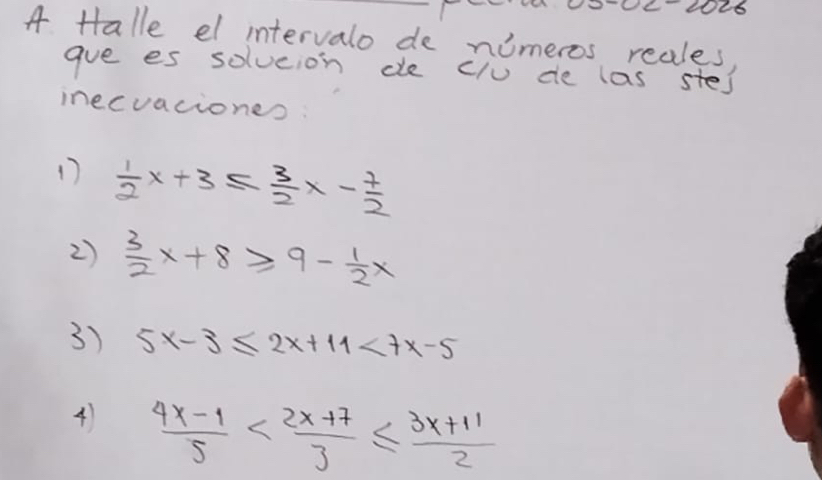 03-02-2026
A. Halle el intervalo de números reales,
que es solución de c/u de las stes
inecuaciones:
1) 1/2 x + 3 ≤ 3/2 x - 7/2
2) 3/2 x + 8 ≥ 9 - 1/2 x
3) 5x - 3 ≤ 2x + 11 < 7x - 5
4) (4x - 1)/5 < (2x + 7)/3 ≤ (3x + 11)/2